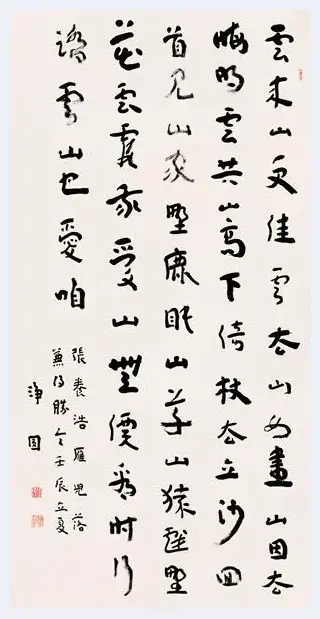 雲来山更佳雲去山如畫山因云
晦明雲共山高下倚杖云立沙回
首見山家野鹿眠山草山猿戲野
花雲霞我愛山無價看時行
踏雲山也愛咱
張養浩雁兒落
兼得勝令壬辰立夏
淨